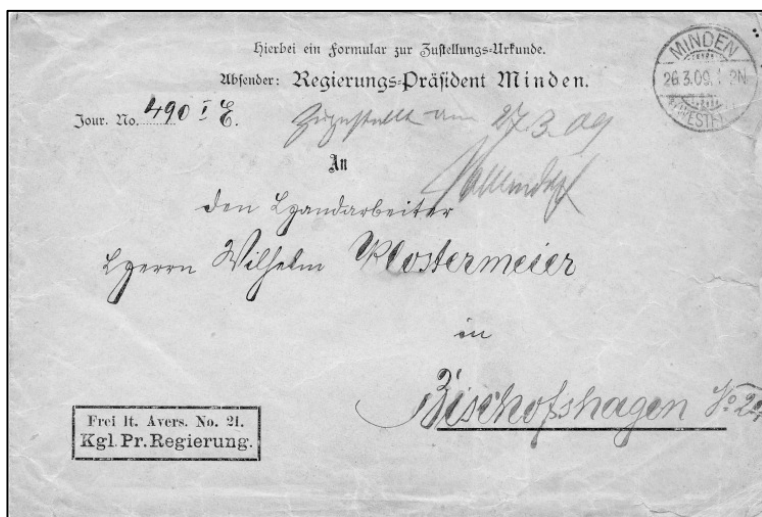 Hierbei ein Formular zur Zustellungs-Urkunde.
Absender: Regierungs-Präsident Minden.
MINDEN
26.3.09. N
(WESTF.)
Jour. No. 490 I E.
Zugestellt am 27.3.09
An
den Handarbeiter
Herrn Wilhelm Klostermeier
in
Bischofshagen No
Frei lt. Avers. No. 21.
Kgl. Pr. Regierung.